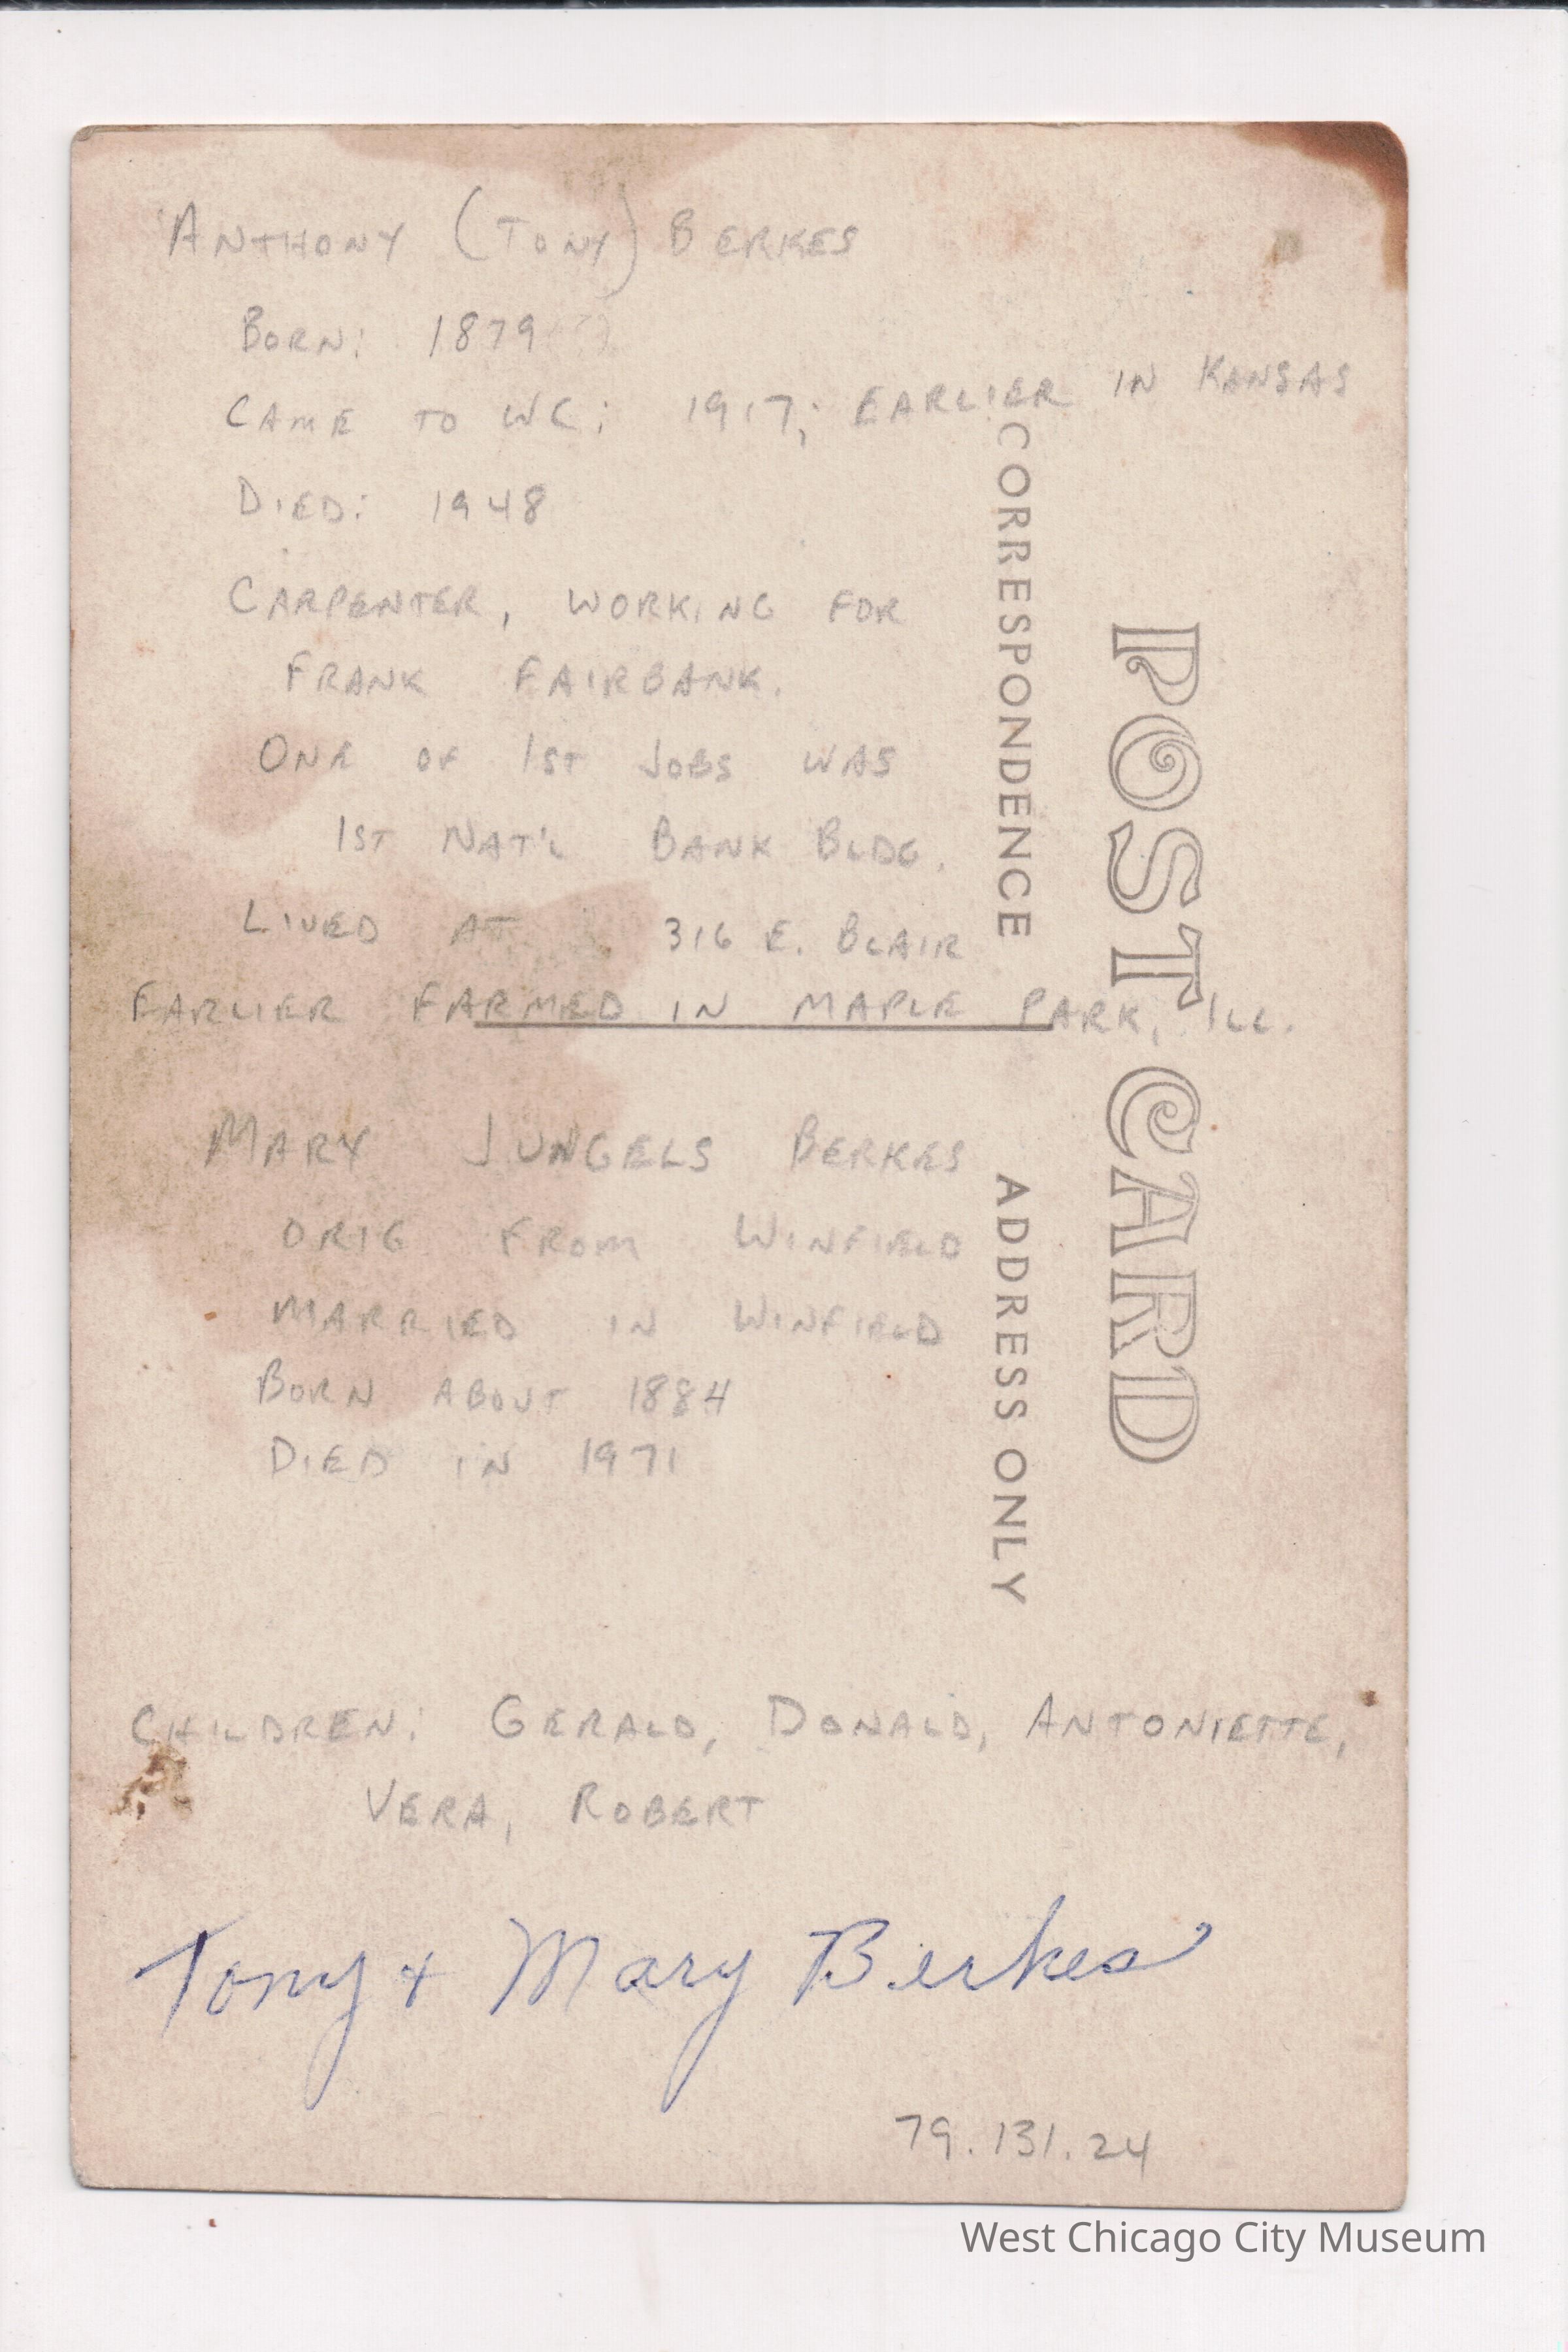 ANTHONY (TONY) BERKES
BORN: 1879 (?)
CAME TO WC: 1917; EARLIER IN KANSAS
DIED: 1948
CARPENTER, WORKING FOR
FRANK FAIRBANK.
ONE OF 1ST JOBS WAS
1ST NAT'L BANK BLDG.
LIVED AT 316 E. BLAIR
EARLIER FARMED IN MAPLE PARK, ILL.
MARY JUNGELS BERKES
ORIG FROM WINFIELD
MARRIED IN WINFIELD
BORN ABOUT 1884
DIED IN 1971
CHILDREN: GERALD, DONALD, ANTONIETTE,
VERA, ROBERT
Tony + Mary Berkes
79.131.24
POST CARD
CORRESPONDENCE
ADDRESS ONLY
West Chicago City Museum